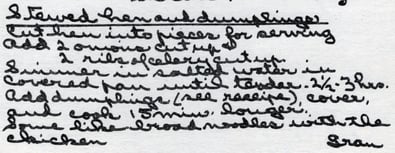 Stewed hen and dumplings
Cut hen into pieces for serving
Add 2 onions cut up
2 ribs of celery cut up.
Simmer in salted water in
covered pan until tender - 2½-3 hrs.
Add dumplings (see receipe), cover,
and cook 15 min. longer.
Some like broad noodles with the
chicken Gram